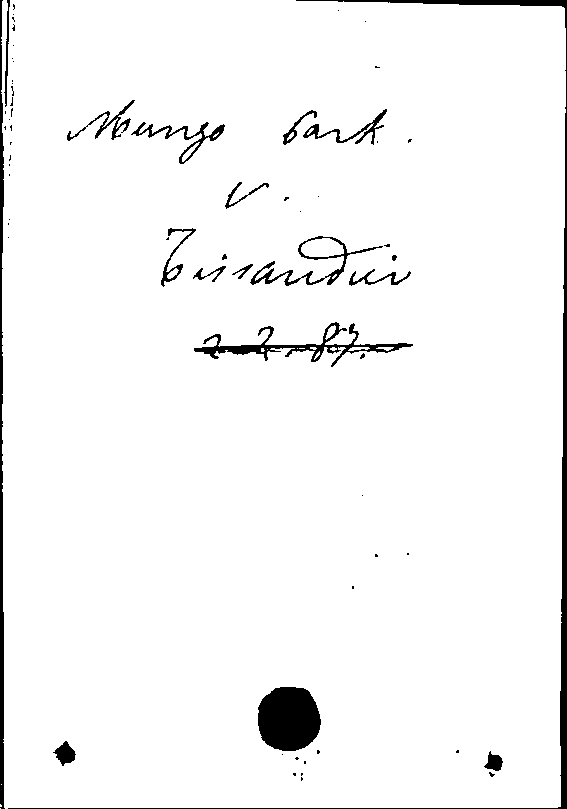 Mungo Park.
v.
Tissandier
2.2.87.